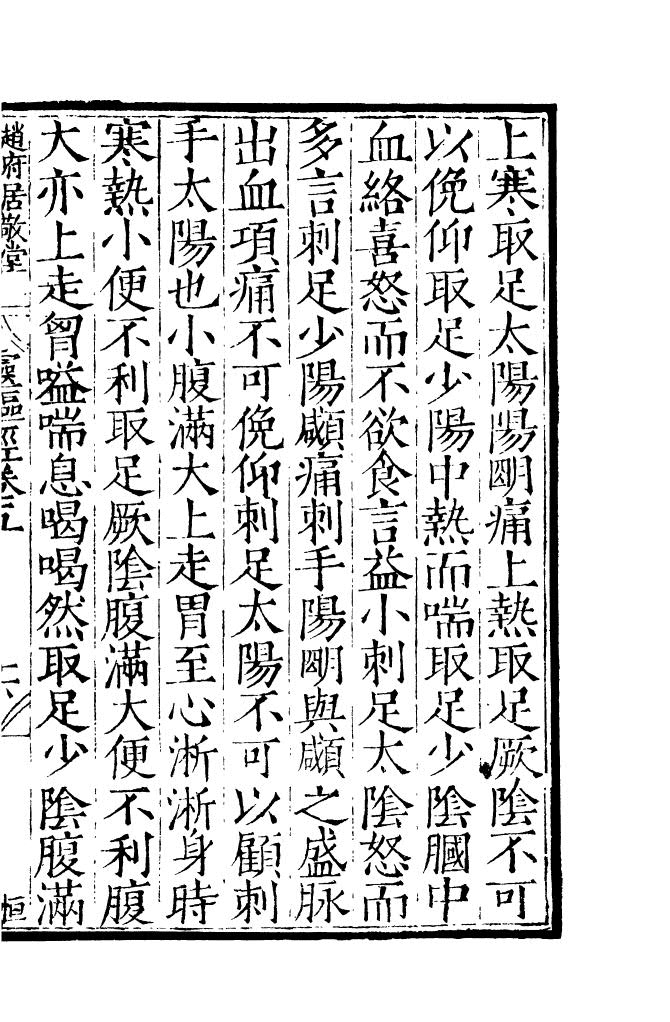 上寒取足太陽陽明痛上熱取足厥陰不可
以俛仰取足少陽中熱而喘取足少陰膕中
血絡喜怒而不欲食言益小刺足太陰怒而
多言刺足少陽顑痛刺手陽明與顑之盛脉
出血項痛不可俛仰刺足太陽不可以顧刺
手太陽也小腹滿大上走胃至心淅淅身時
寒熱小便不利取足厥陰腹滿大便不利腹
大亦上走胷嗌喘息喝喝然取足少陰腹滿
趙府居敬堂
靈樞經卷五
恒